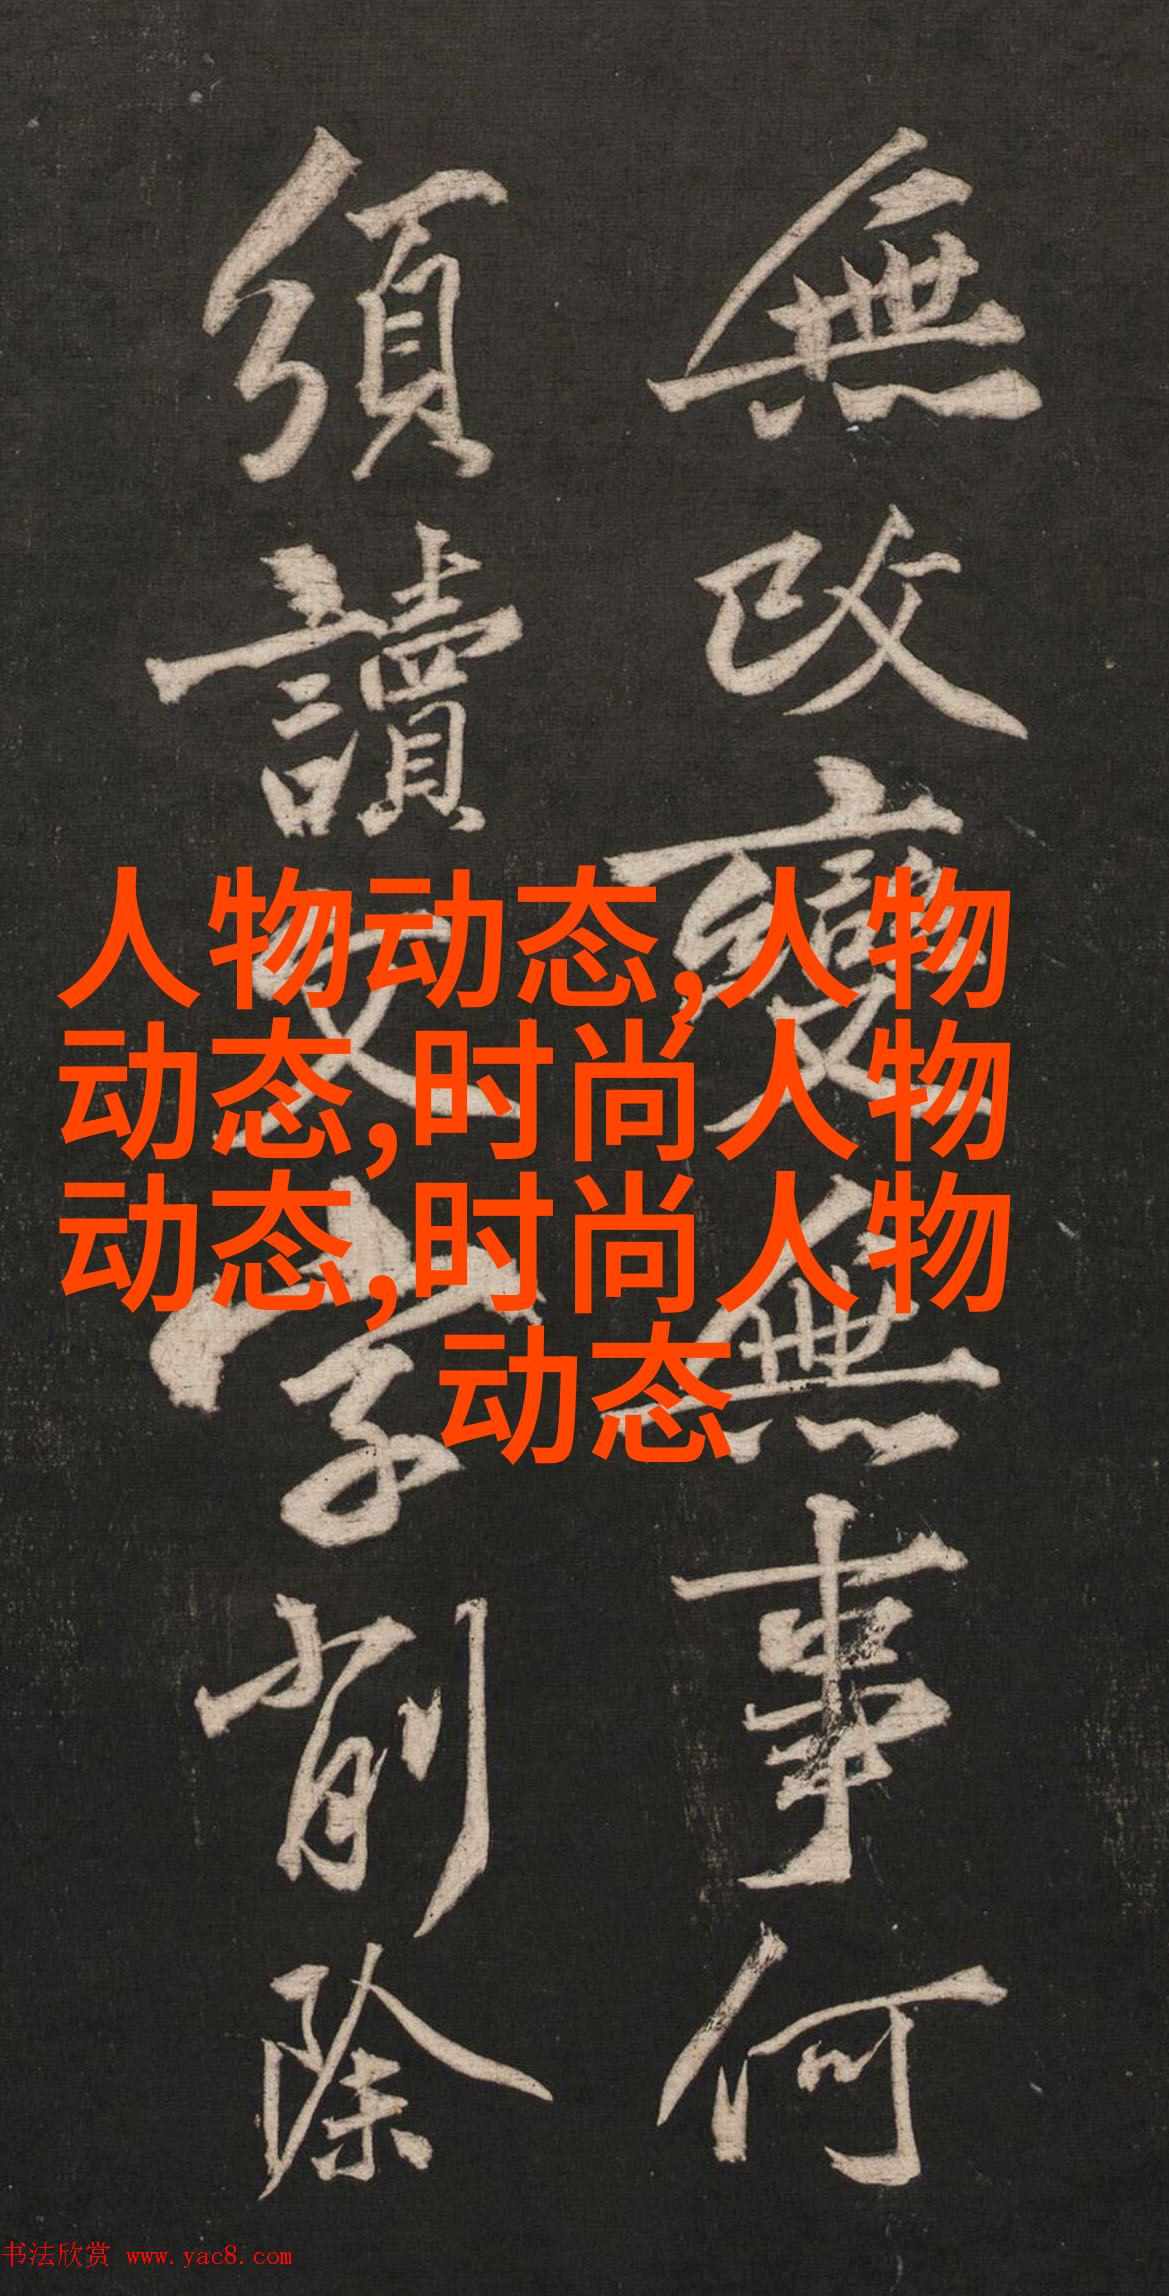 無改變無事何
須讀文字削除
人物动态,人物
动态,时尚人物
动态,时尚人物
动态
书法欣赏 www.yac8.com